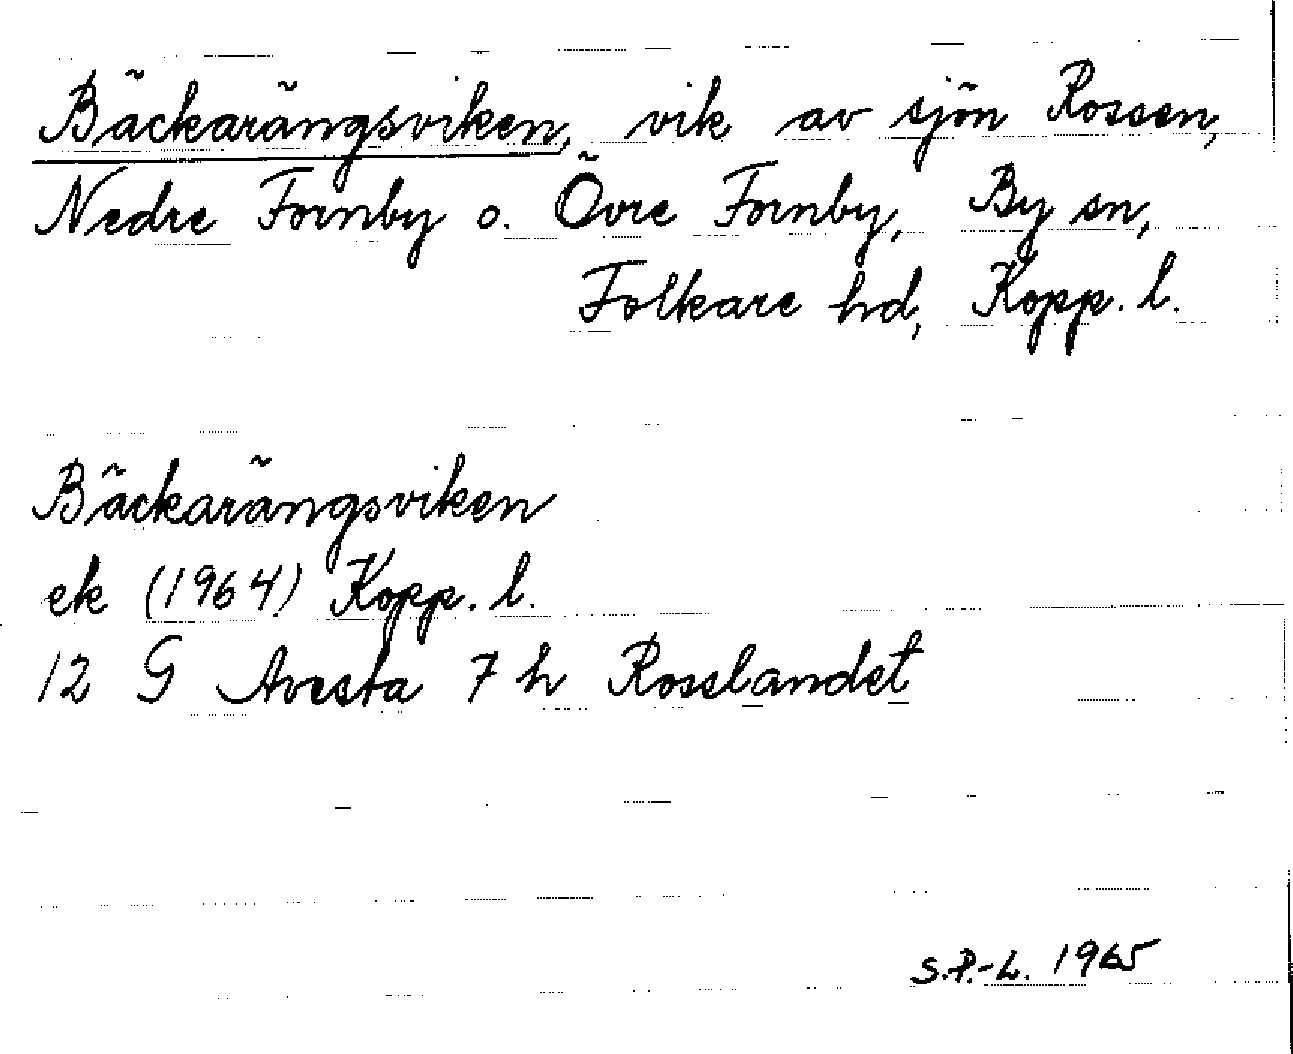 Bäckarängsviken, vik av sjön Rossen,
Nedre Fornby o. Övre Fornby, By sn,
Folkare hd, Kopp. l.
Bäckarängsviken
ek (1964) Kopp. l.
12 G Avesta 7 h Rosslandet
S.P.-L. 1965